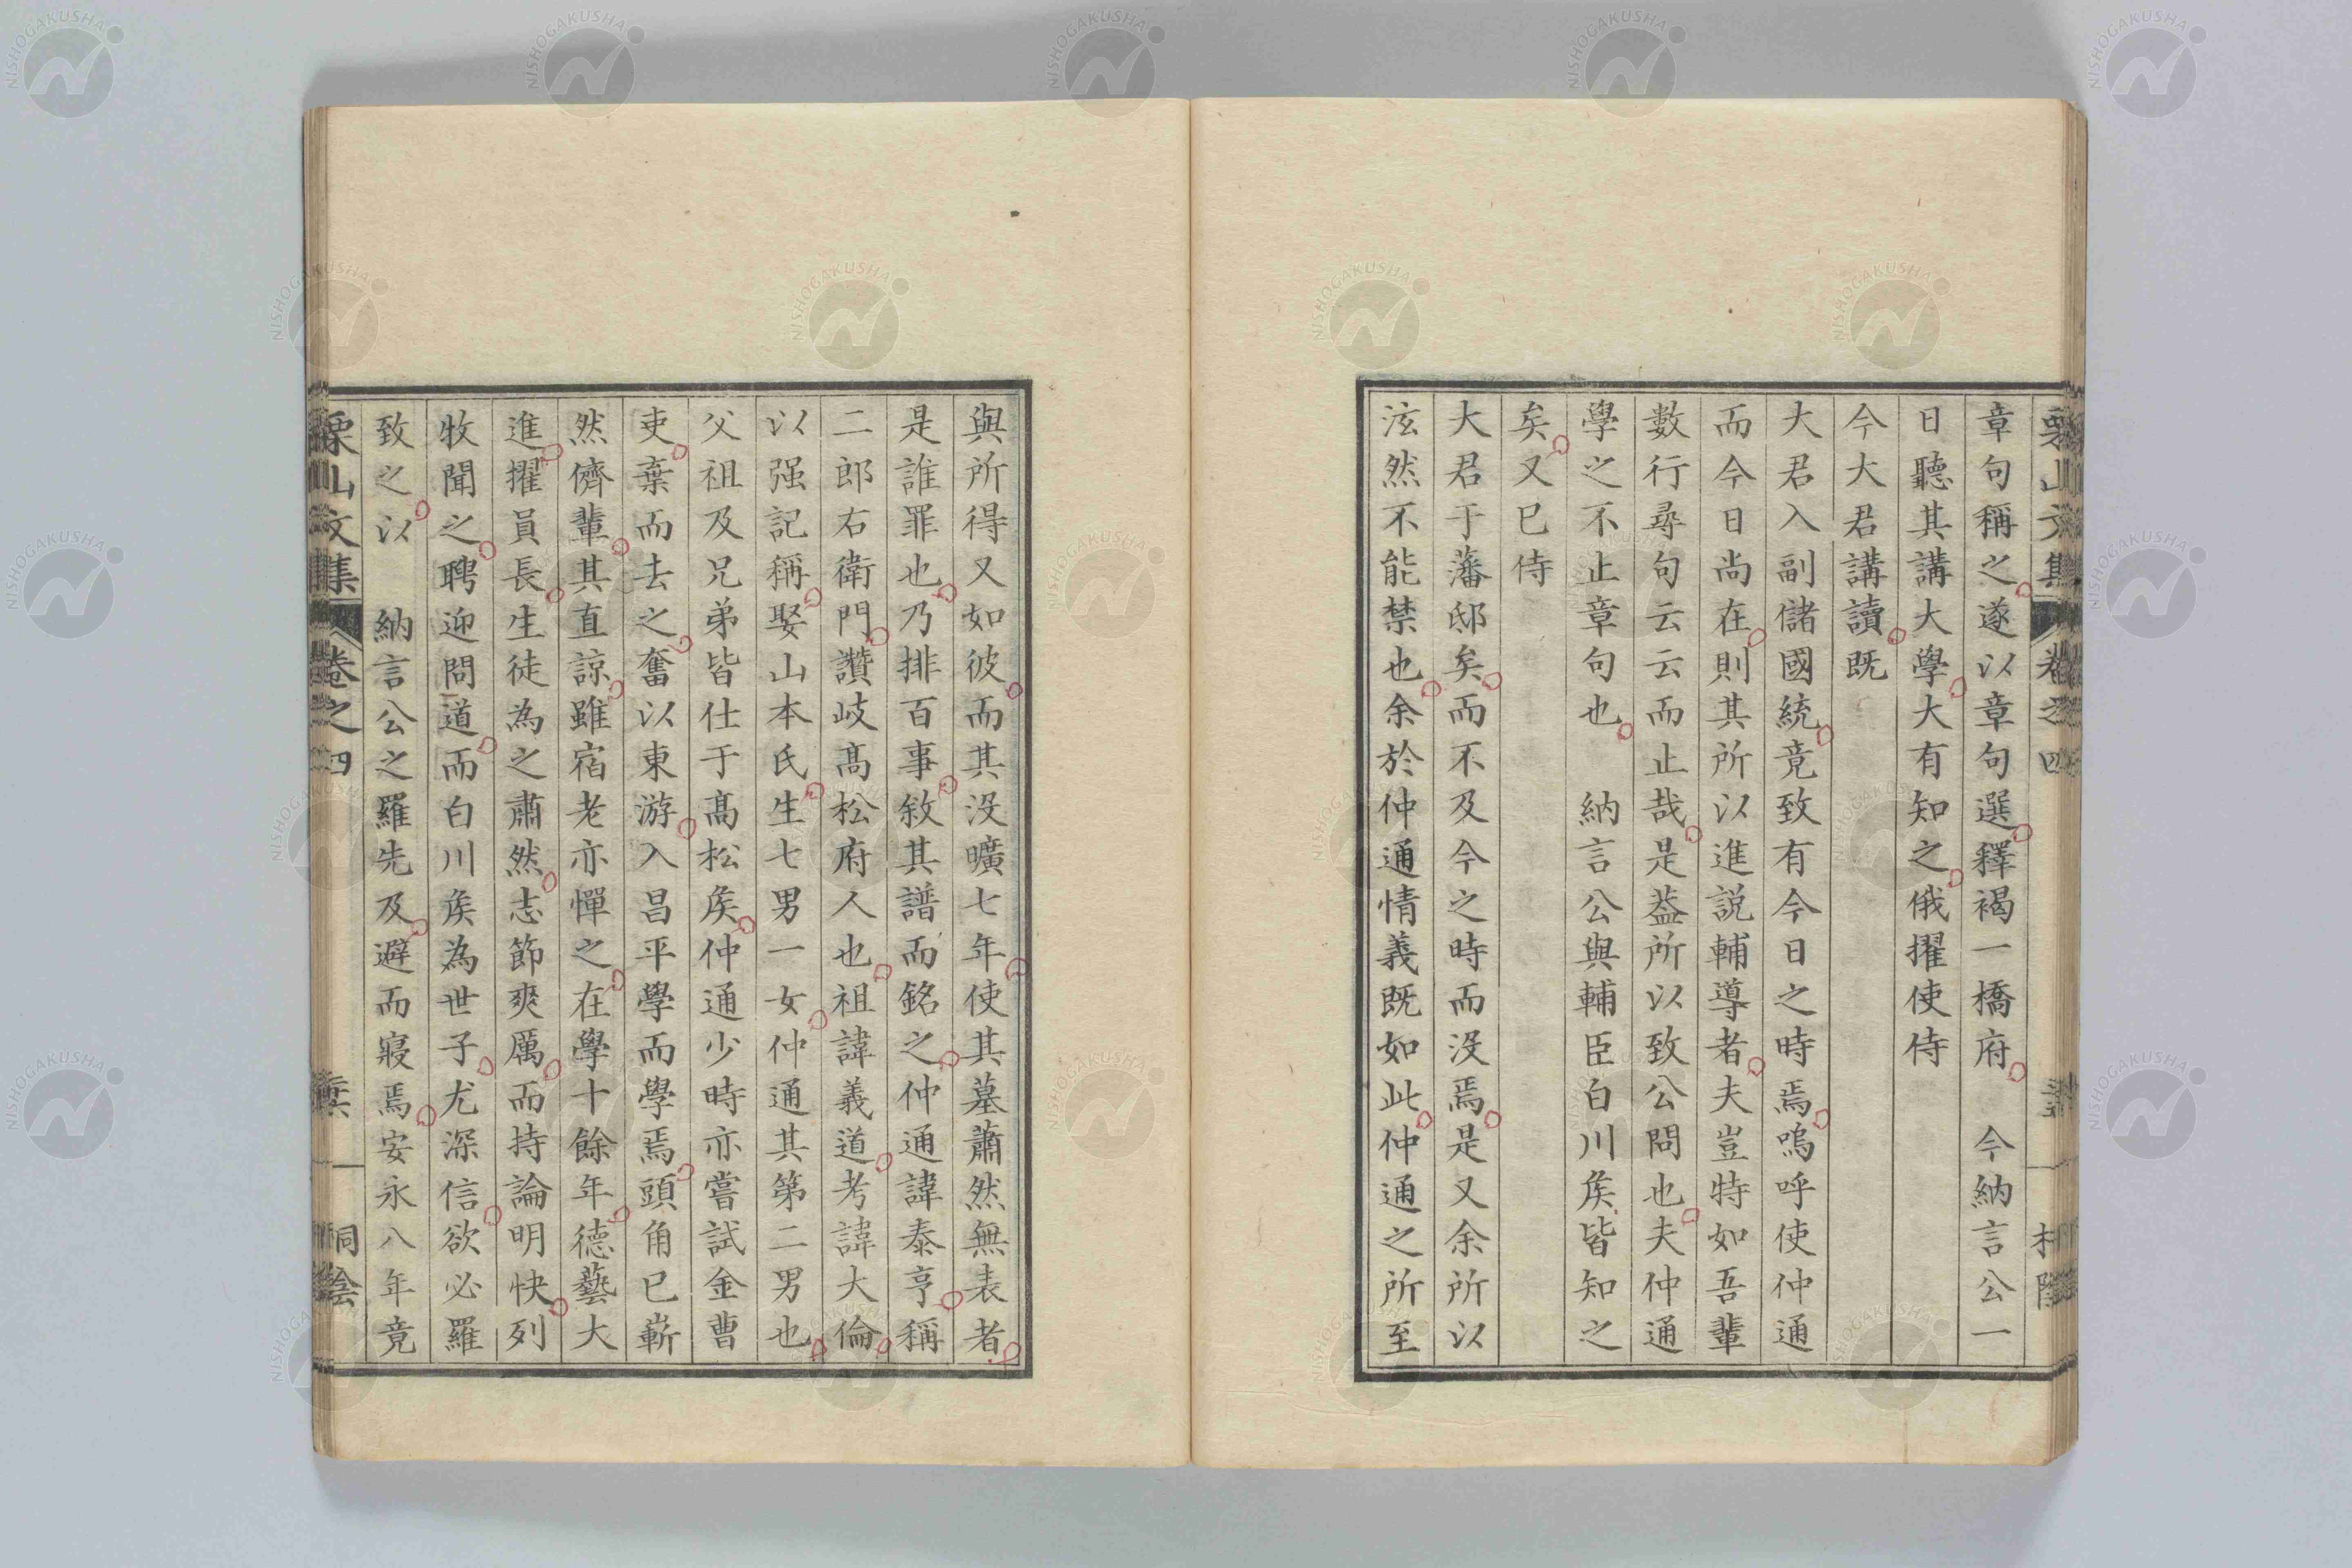 章句稱之遂以章句選釋褐一橋府　今納言公一
日聽其講大學大有知之俄擢使侍
今大君講讀既
大君入副儲國統竟致有今日之時焉嗚呼使仲通
而今日尚在則其所以進説輔導者夫豈特如吾輩
數行尋句云云而止哉是葢所以致公問也夫仲通
學之不止章句也　納言公與輔臣白川矦皆知之
矣又已侍
大君于藩邸矣而不及今之時而沒焉是又余所以
泫然不能禁也余於仲通情義既如此仲通之所至
與所得又如彼而其沒曠七年使其墓蕭然無表者
是誰罪也乃排百事敘其譜而銘之仲通諱泰亨稱
二郎右衛門讚岐髙松府人也祖諱義道考諱大倫
以强記稱娶山本氏生七男一女仲通其第二男也
父祖及兄弟皆仕于髙松矦仲通少時亦嘗試金曹
吏棄而去之奮以東游入昌平學而學焉頭角已嶄
然儕輩其直諒雖宿老亦憚之在學十餘年德藝大
進擢員長生徒為之肅然志節爽厲而持論明快列
牧聞之聘迎問道而白川矦為世子尤深信欲必羅
致之以　納言公之羅先及避而寢焉安永八年竟
栗山文集　卷之四　桐陰
NISHOGAKUSHA